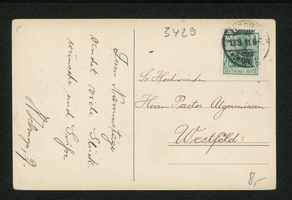 3429
13.3.11.6
Zum Namenstage
sendet viele Glück
wünsche und Grüße
Sr. Hochwürden
Herrn Pastor Algermissen
Westfeld
8,-